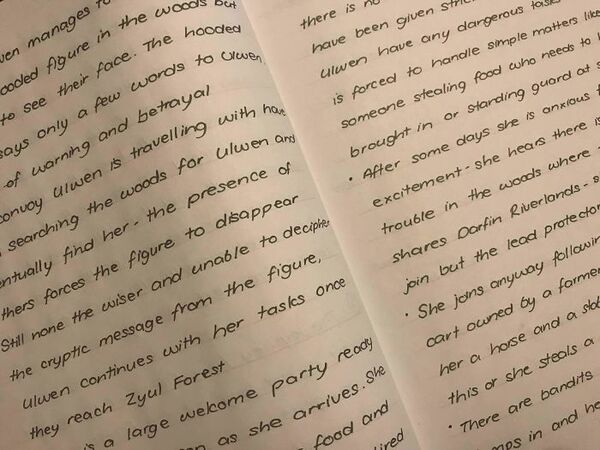 manages to
figure in the woods but
to see their face. The hooded
says only a few words to Ulwen,
of warning and betrayal
convoy Ulwen is travelling with have
searching the woods for Ulwen and
find her - the presence of
forces the figure to disappear
Still none the wiser and unable to decipher
the cryptic message from the figure,
Ulwen continues with her tasks once
they reach Zyul Forest
is a large welcome party ready
as she arrives. She
food and
there is
have been given
Ulwen have any dangerous tasks
is forced to handle simple matters like
someone stealing food who needs to
brought in or standing guard at
• After some days she is anxious
excitement - she hears there is
trouble in the woods where
shares Darfin Riverlands -
join but the lead protector
• She joins anyway following
cart owned by a farmer
her a horse and a
this or she steals a
• There are bandits
in and